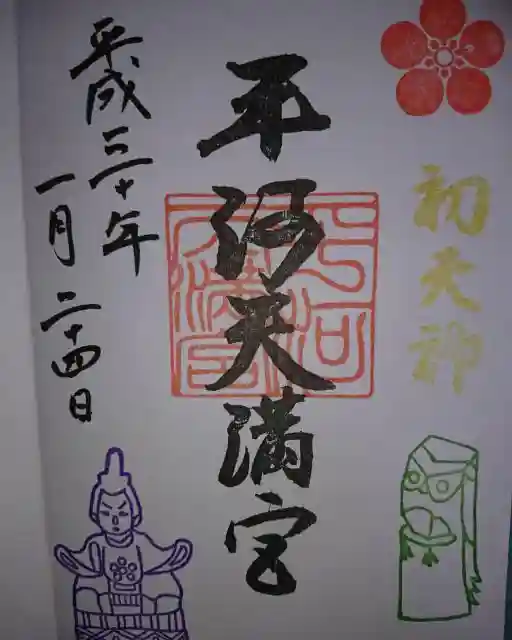 初天神
平河天満宮
平成三十年
一月二十四日